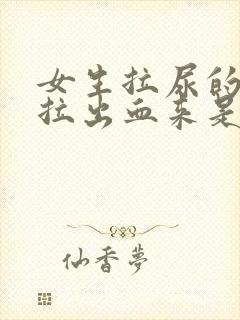 女生拉尿的
拉出血来是
仙香夢